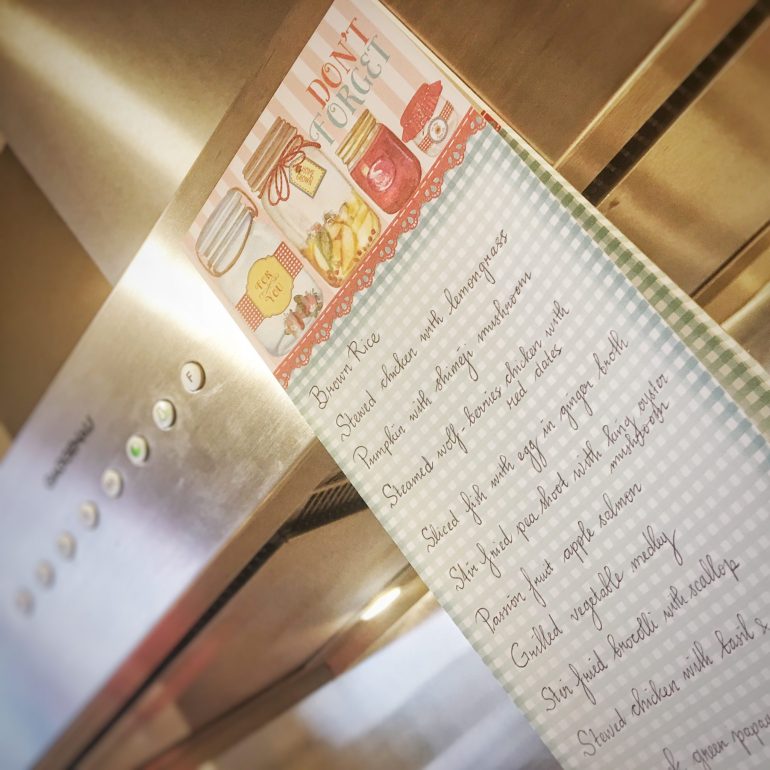 DON'T
FORGET
FOR
YOU
F
Brown Rice
Stewed chicken with lemongrass
Pumpkin with shimeji mushroom
Steamed wolf-berries chicken with
red dates
Sliced fish with egg in ginger broth
Stir fried pea shoot with king oyster
mushroom
Passion fruit apple salmon
Grilled vegetable medley
Stir fried brocolli with scallop
Stewed chicken with basil &
green papa